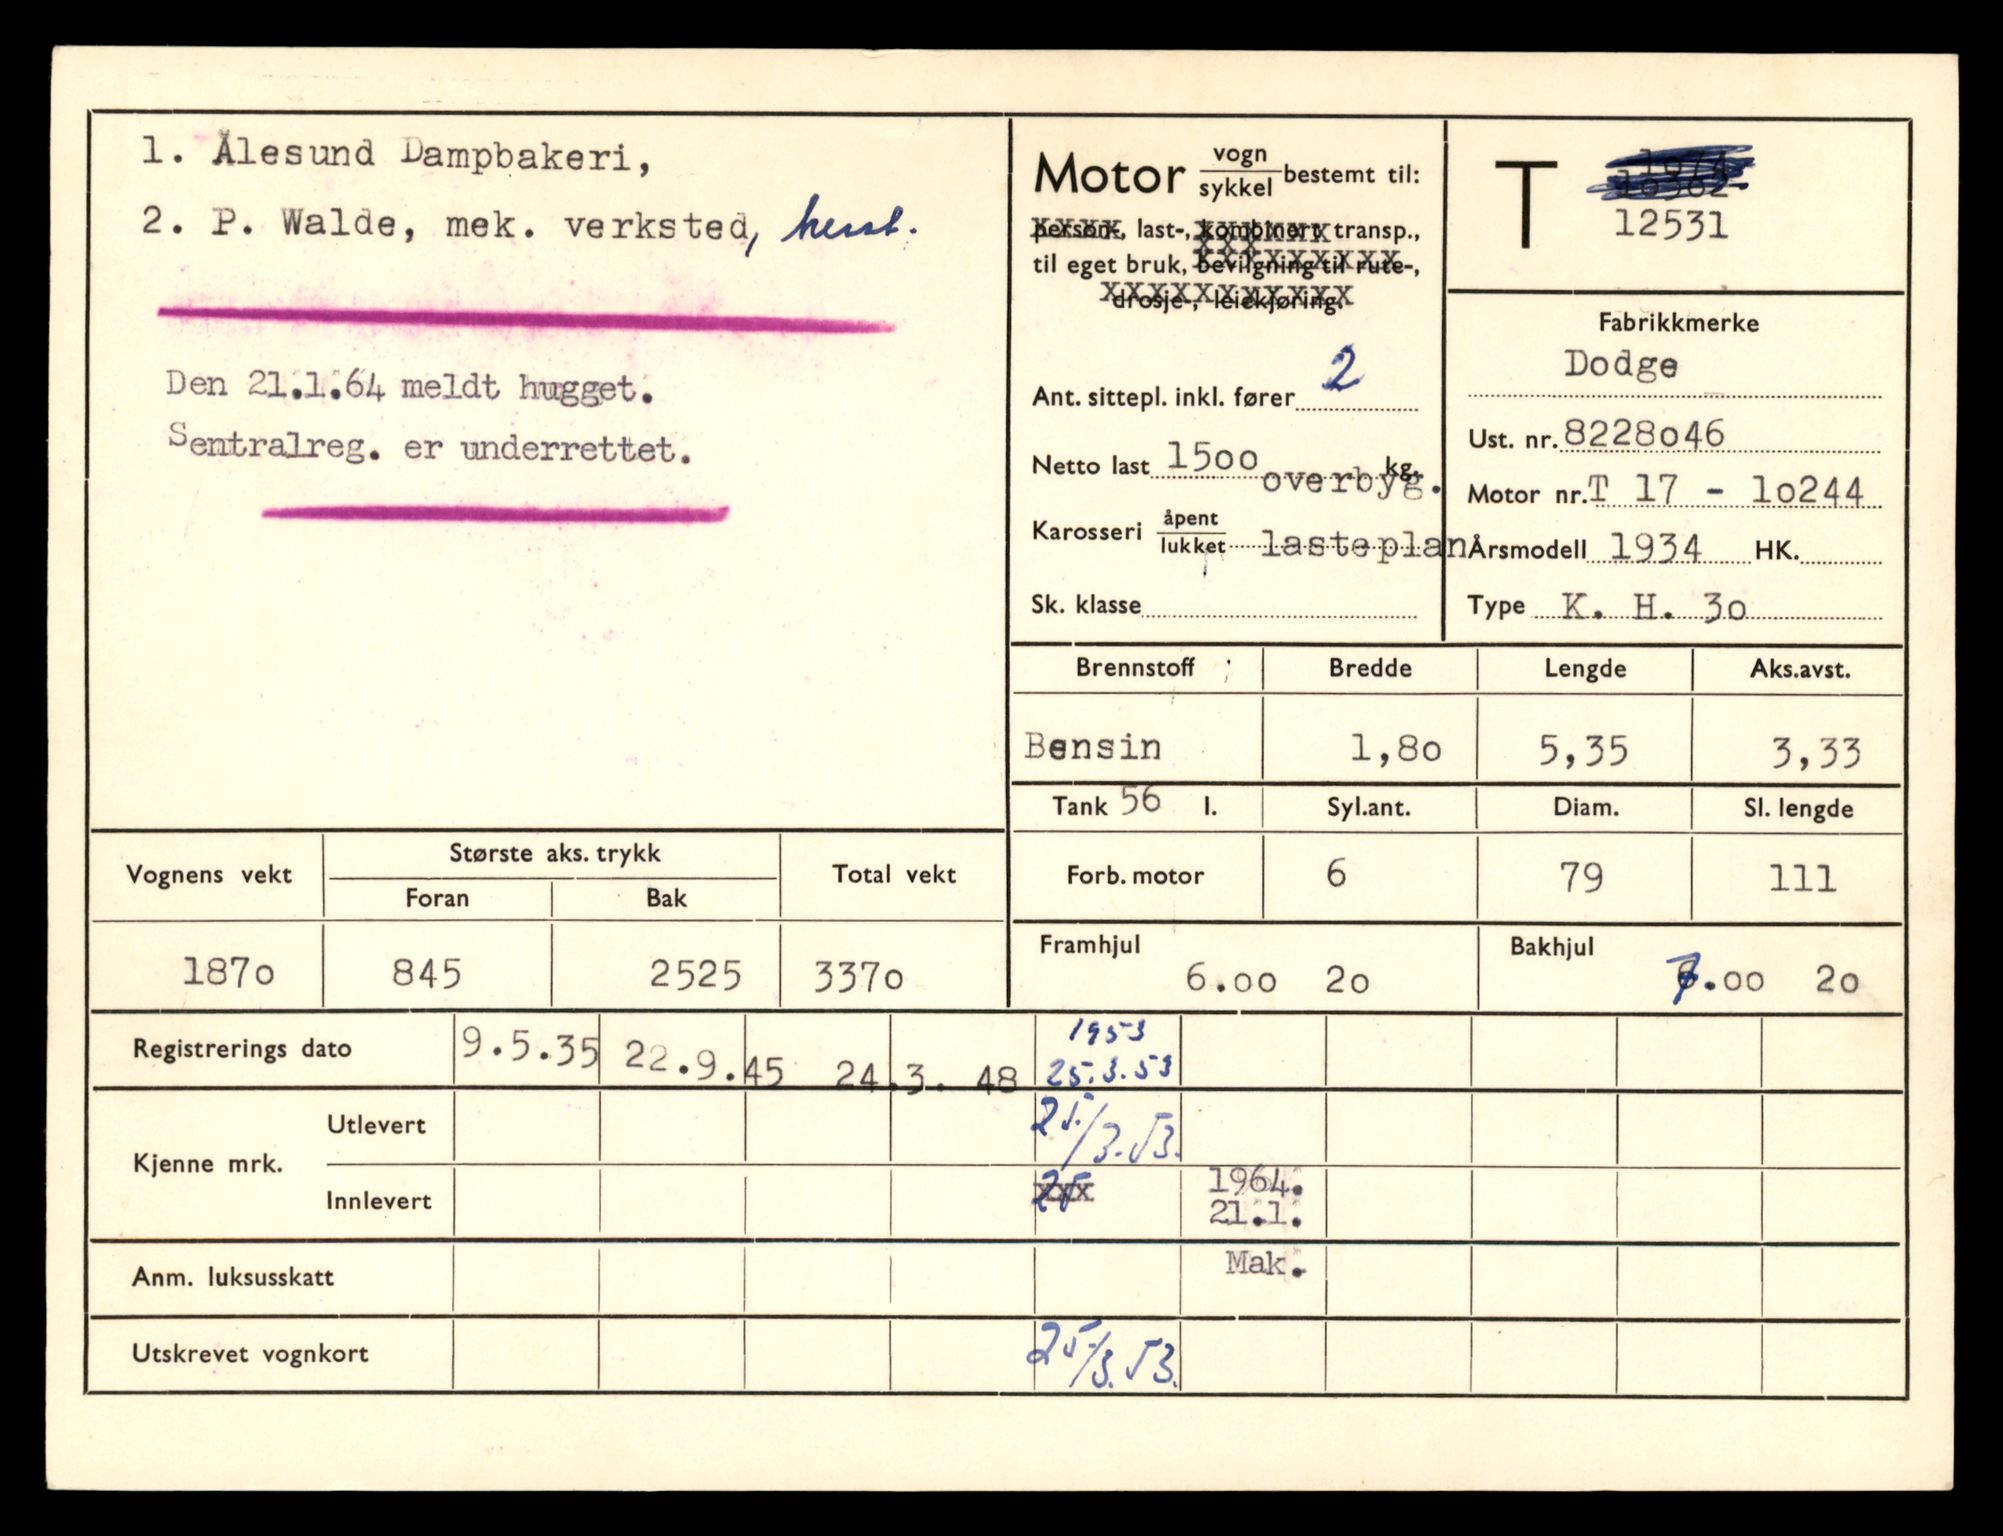 1. Ålesund Dampbakeri,
2. P. Walde, mek. verksted, herst.
Den 21.1.64 meldt hugget.
Sentralreg. er underrettet.
Motor vogn
sykkel bestemt til:
person-, last-, kombinert transp.,
til eget bruk, bevilgning til rute-,
drosje-, leiekjøring.
Ant. sittepl. inkl. fører 2
Netto last 15oo kg.
overbyg.
Karosseri åpent
lukket lasteplan
Sk. klasse
T 1074
12531
Fabrikkmerke
Dodge
Ust. nr. 8228o46
Motor nr. T 17 - 1o244
Årsmodell 1934 HK.
Type K. H. 3o
Brennstoff Bredde Lengde Aks.avst.
Bensin 1,8o 5,35 3,33
Tank 56 l. Syl.ant. Diam. Sl. lengde
Forb. motor 6 79 111
Framhjul 6.oo 2o
Bakhjul 7.oo 2o
Vognens vekt Største aks. trykk Total vekt
Foran Bak
187o 845 2525 337o
Registrerings dato 9.5.35 22.9.45 24.3. 48 1953
25.3.53
Kjenne mrk. Utlevert 25/3.53.
Innlevert 25 xxx 1964.
21.1.
Anm. luksusskatt Mak.
Utskrevet vognkort 25/3.53.